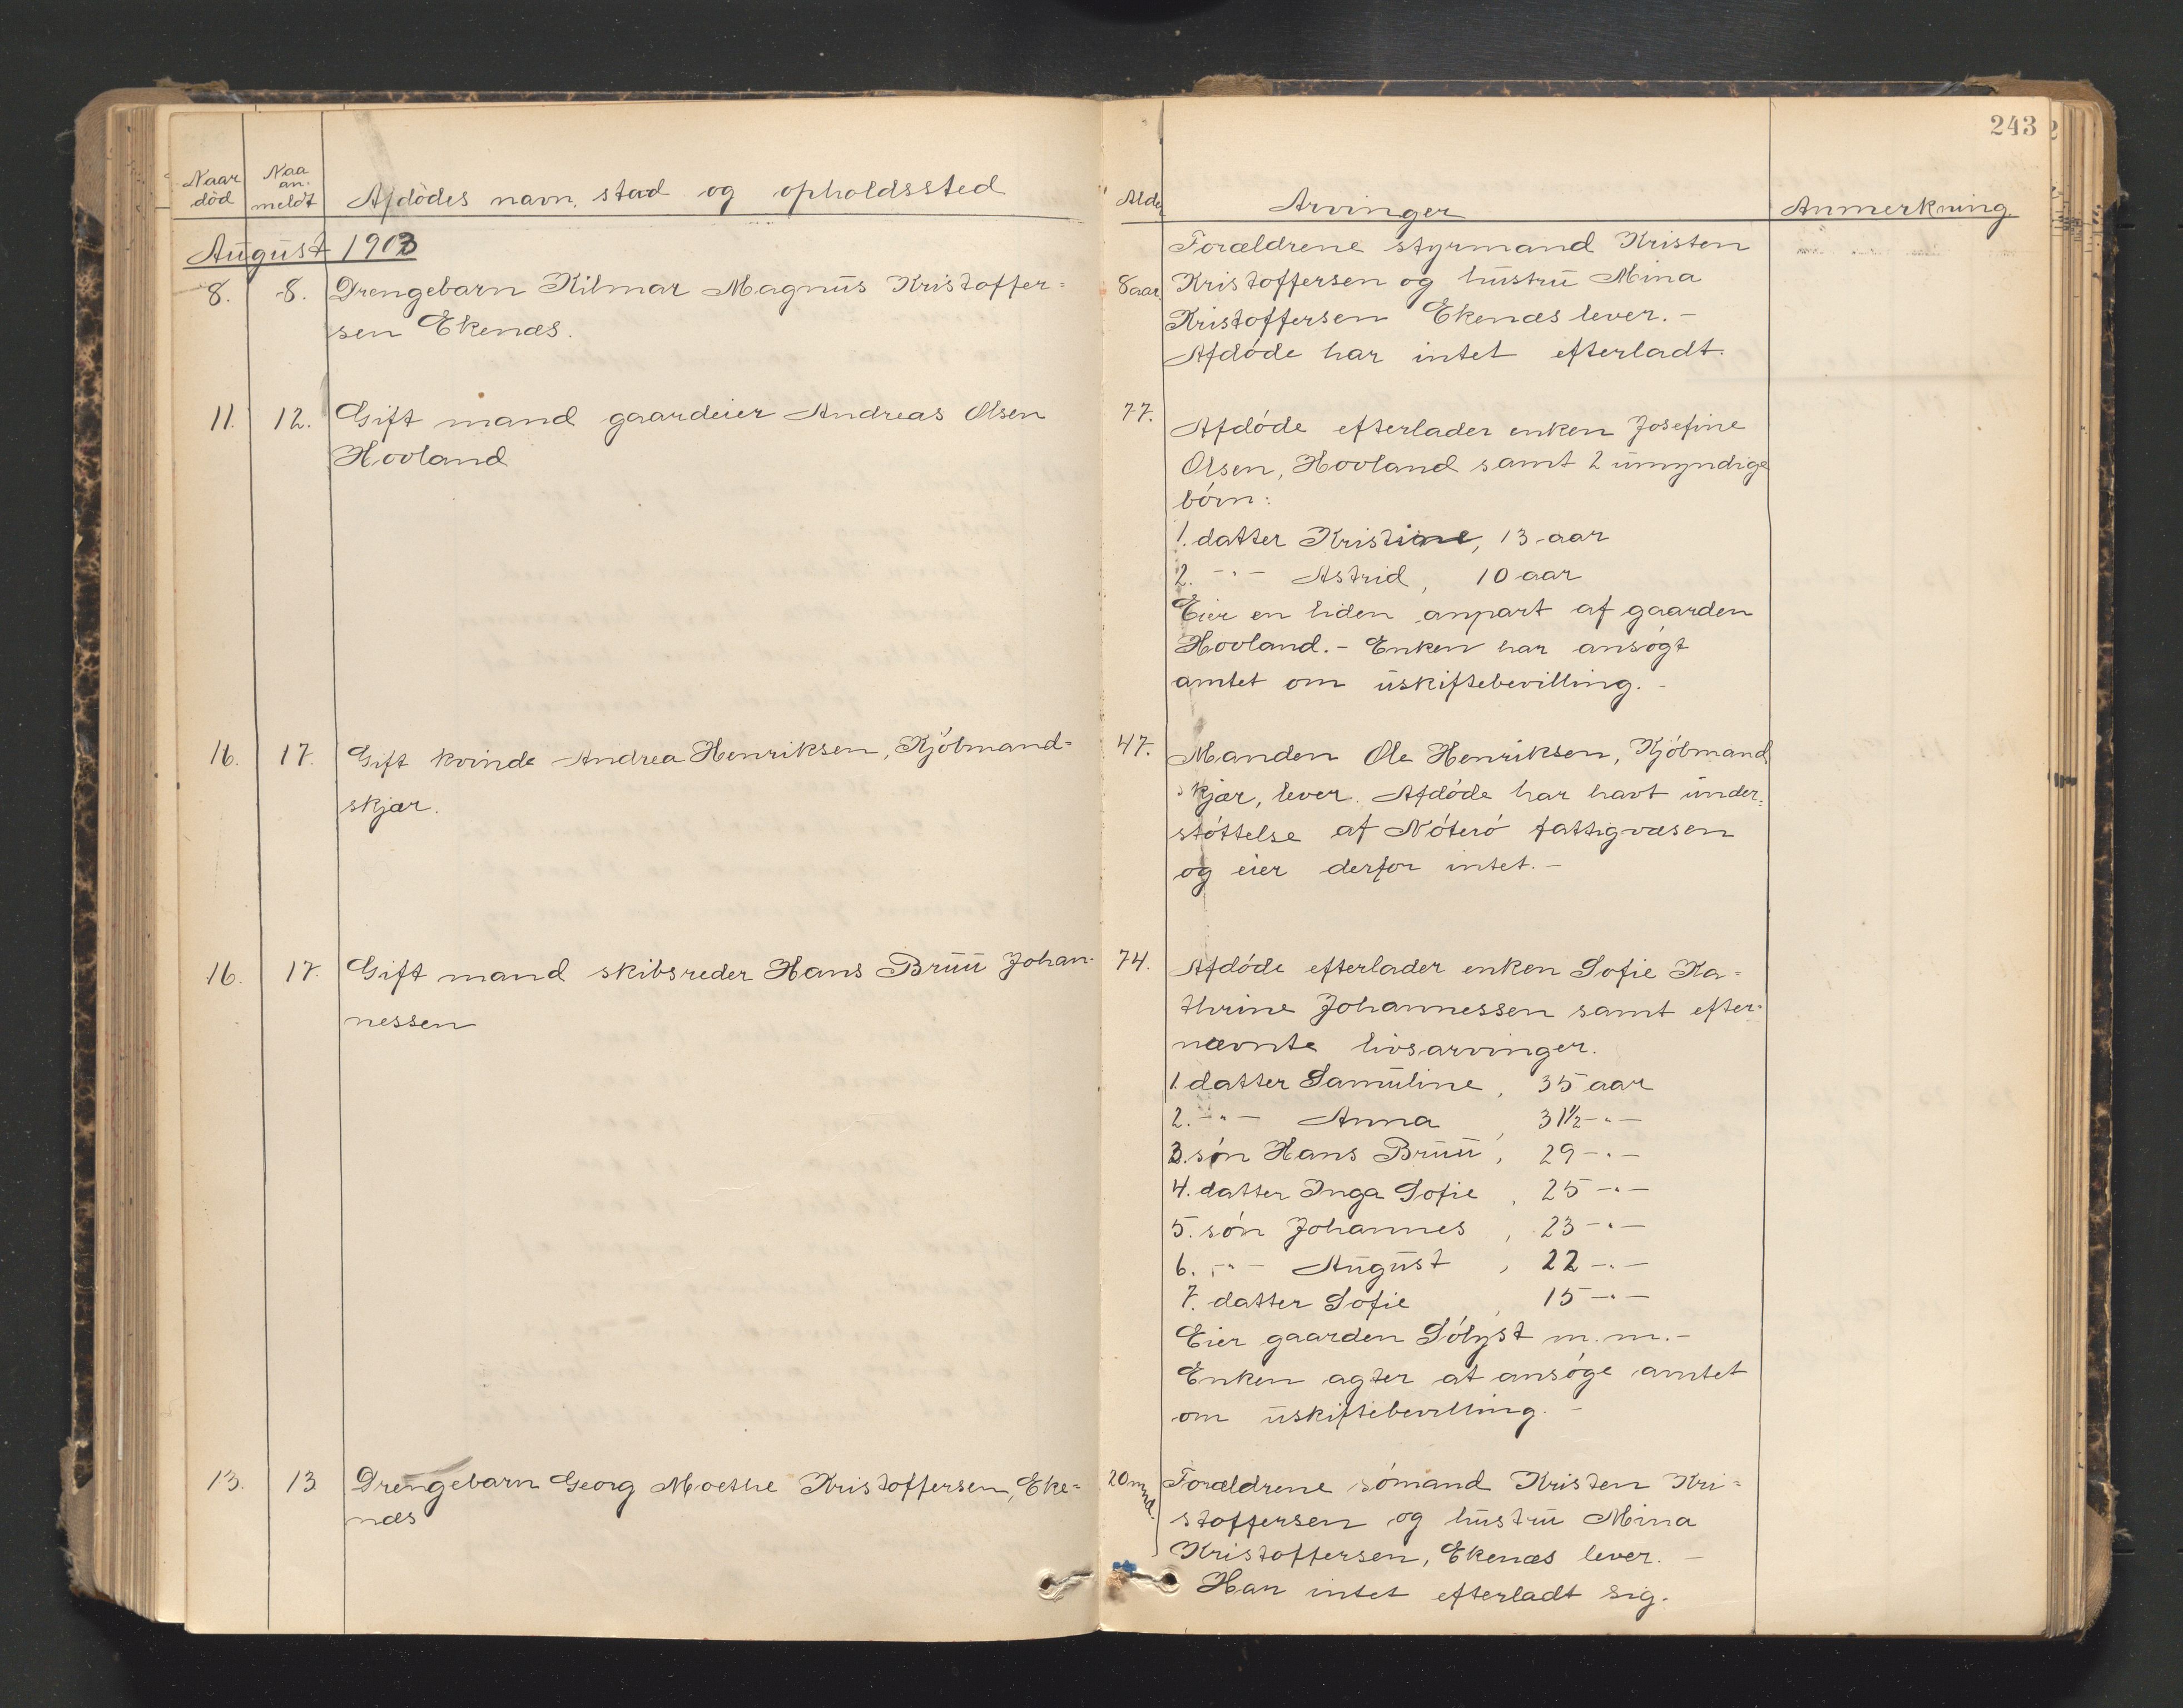 243
Naar død
Naa an- meldt
Afdödes navn, stad og opholdssted
Alder
Arvinger
Anmerkning.
August 1903
8. 8. Drengebarn Hilmar Magnus Kristoffer=
sen Ekenæs.
8 aar.
Forældrene styrmand Kristen
Kristoffersen og hustru Mina
Kristoffersen Ekenæs lever. -
Afdøde har intet efterladt.
11. 12. Gift mand gaardeier Andreas Olsen
Hovland
77.
Afdøde efterlader enken Josefine
Olsen, Hovland samt 2 umyndige
børn:
1. datter Kristine, 13 aar
2. -"- Astrid, 10 aar
Eier en liden anpart af gaarden
Hovland. - Enken har ansøgt
amtet om uskiftebevilling. -
16. 17. Gift kvinde Andrea Henriksen, Kjøbmand=
skjær.
47.
Manden Ole Henriksen, Kjøbmand
skjær, lever. Afdøde har havt under=
støttelse af Nøterø fattigvæsen
og eier derfor intet. -
16. 17. Gift mand skibsreder Hans Bruu Johan-
nessen
74.
Afdøde efterlader enken Sofie Ka=
thrine Johannessen samt efter-
nævnte livsarvinger.
1. datter Samuline, 35 aar
2. -"- Anna, 31½ -"-
3. søn Hans Bruu, 29 -"-
4. datter Inga Sofie, 25 -"-
5. søn Johannes, 23 -"-
6. -"- August, 22 -"-
7. datter Sofie, 15 -"-
Eier gaarden Sølyst m.m. -
Enken agter at ansøge amtet
om uskiftebevilling. -
13. 13 Drengebarn Georg Moethe Kristoffersen, Eke=
næs
20 mnd.
Forældrene sømand Kristen Kri=
stoffersen og hustru Mina
Kristoffersen, Ekenæs lever. -
Har intet efterladt sig.